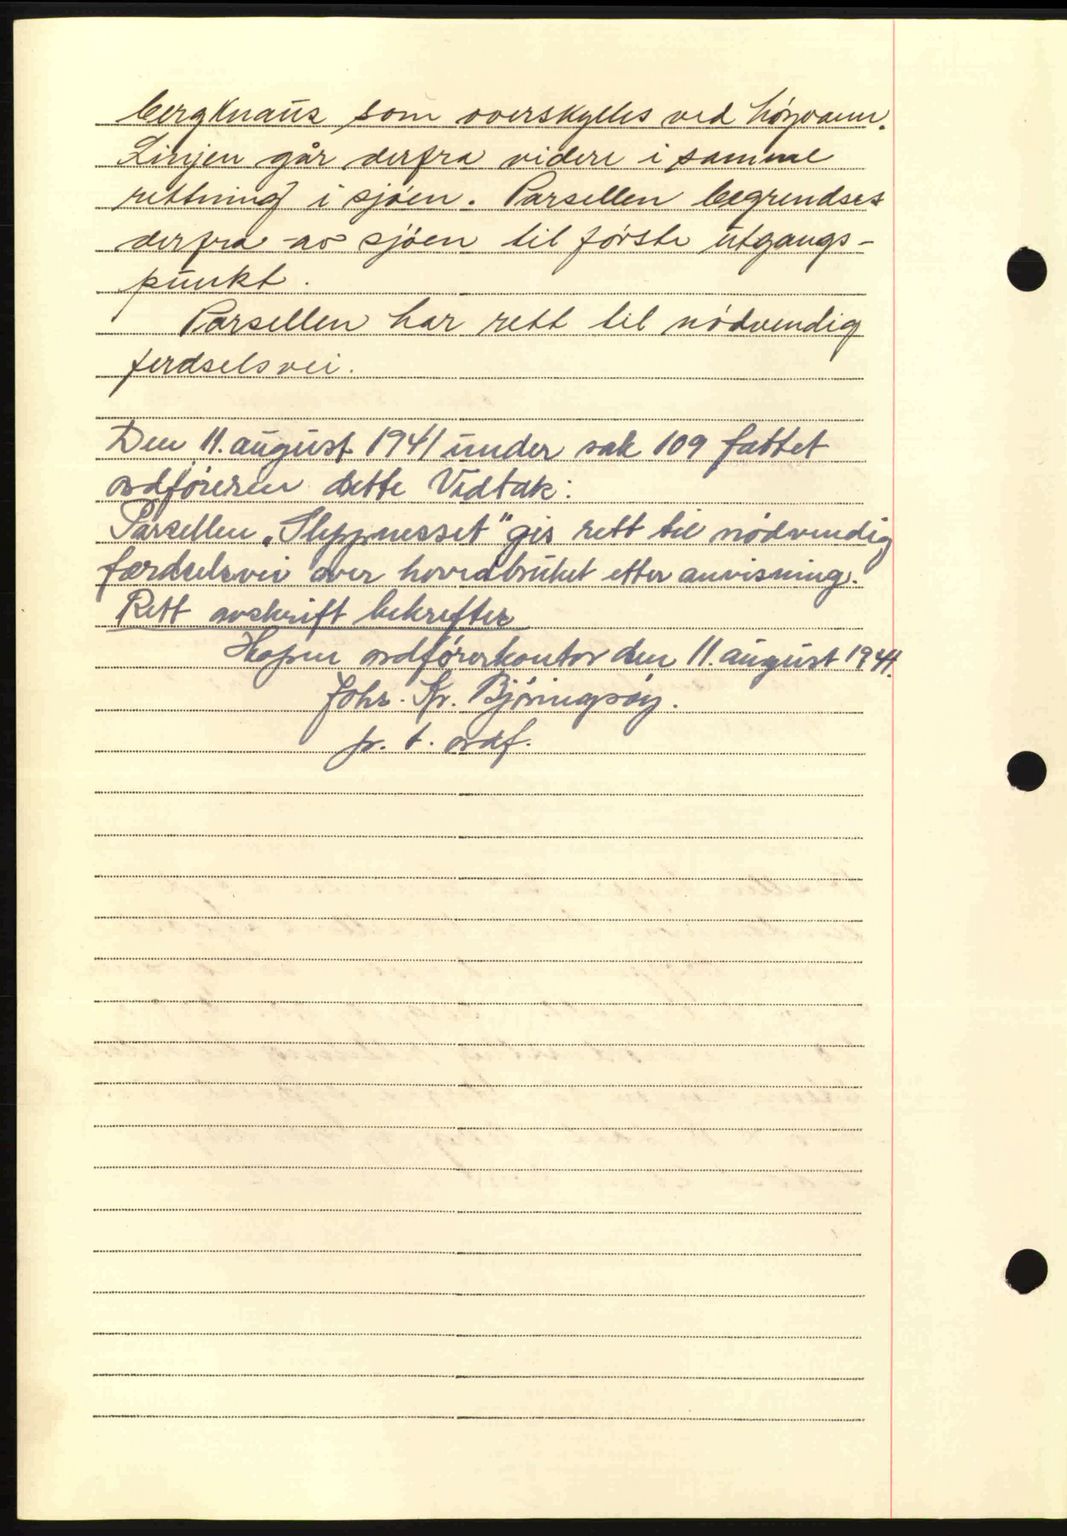 bergknaus som overskylles ved höyvann.
Linjen går derfra videre i samme
rettning i sjöen. Parsellen begrendses
derfra av sjöen til förste utgangs-
punkt.
Parsellen har rett til nödvendig
ferdselsvei.
Den 11. august 1941 under sak 109 fattet
ordföreren dette Vedtak:
Parsellen „Sleppnesset" gis rett til nödvendig
færdselsvei over hovedbruket etter anvisning.
Rett avskrift bekrefter
Hopen ordförerkontor den 11. august 1941.
Johs. Kr. Björingsöy.
p. t. ordf.